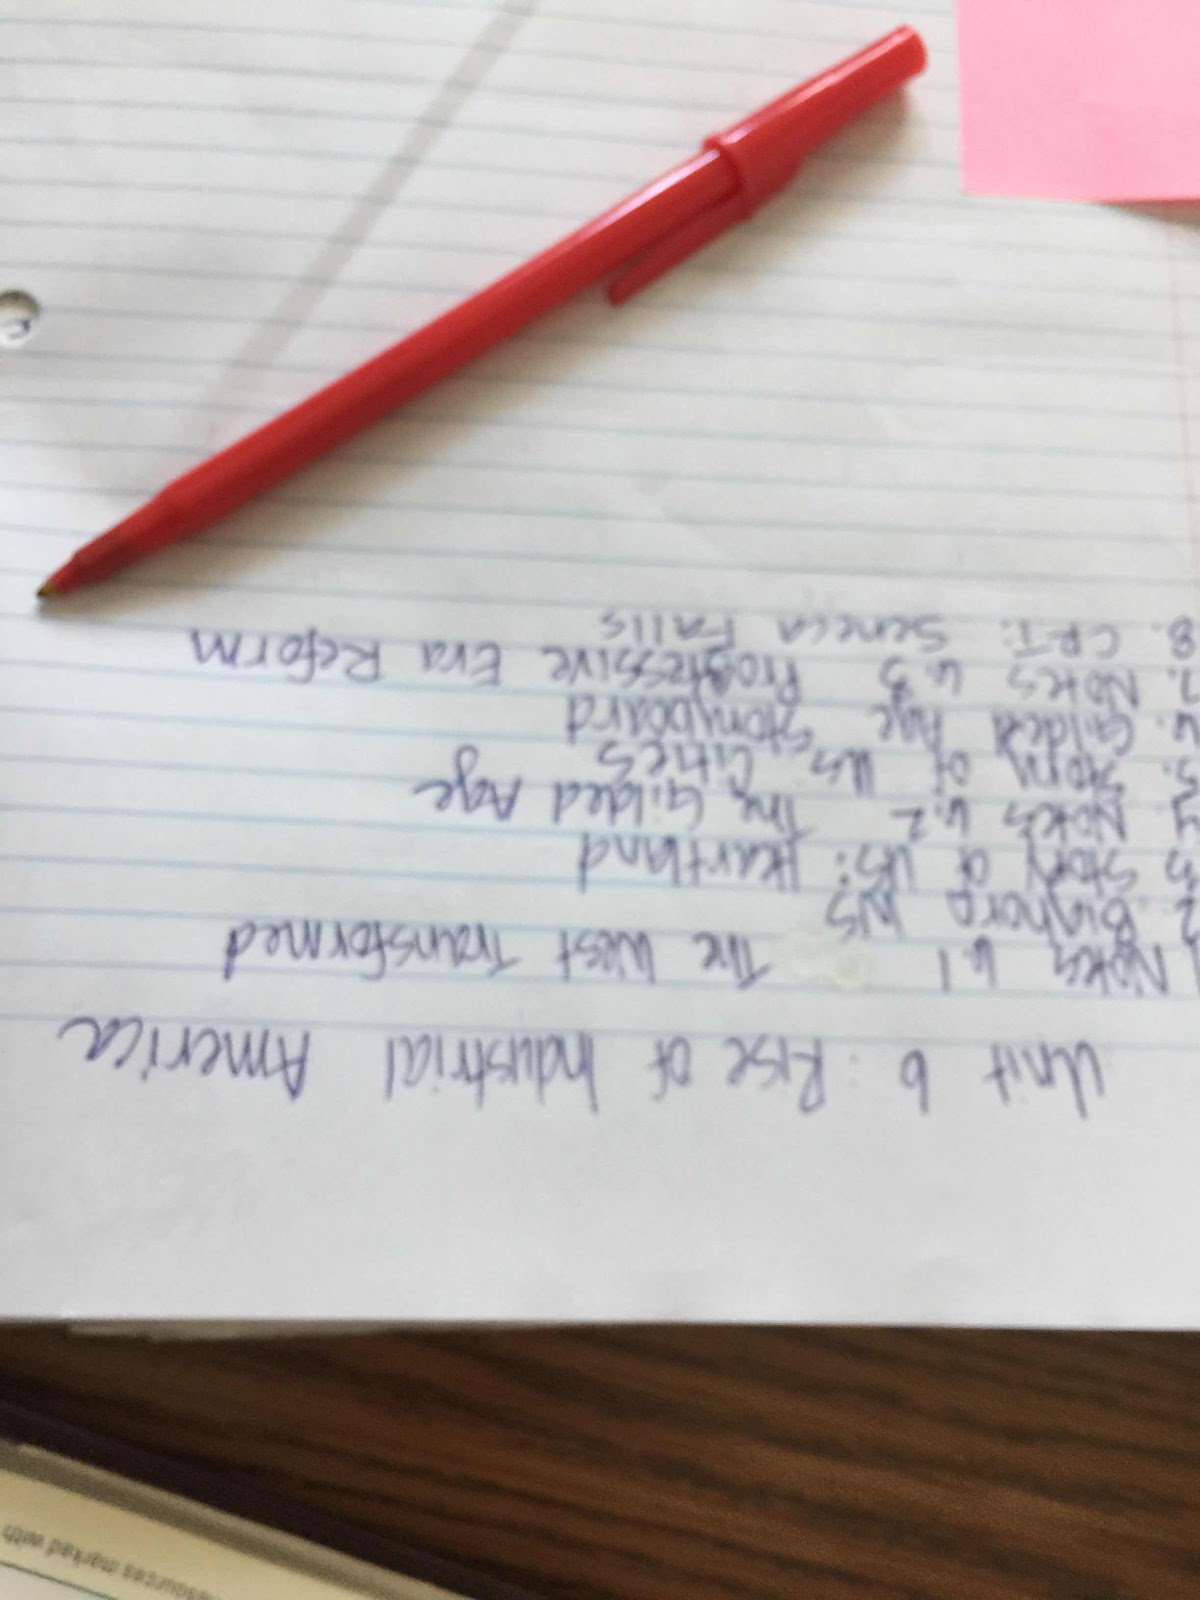 Unit 6: Rise of Industrial America
1 Notes 6.1 The West Transformed
2. Bighorn WS
3 Story of US: Heartland
4. Notes 6.2 The Gilded Age
5. Story of US Cities
6. Gilded Age Storyboard
7. Notes 6.3 Progressive Era Reform
8. CRT: Seneca Falls
resources marked with